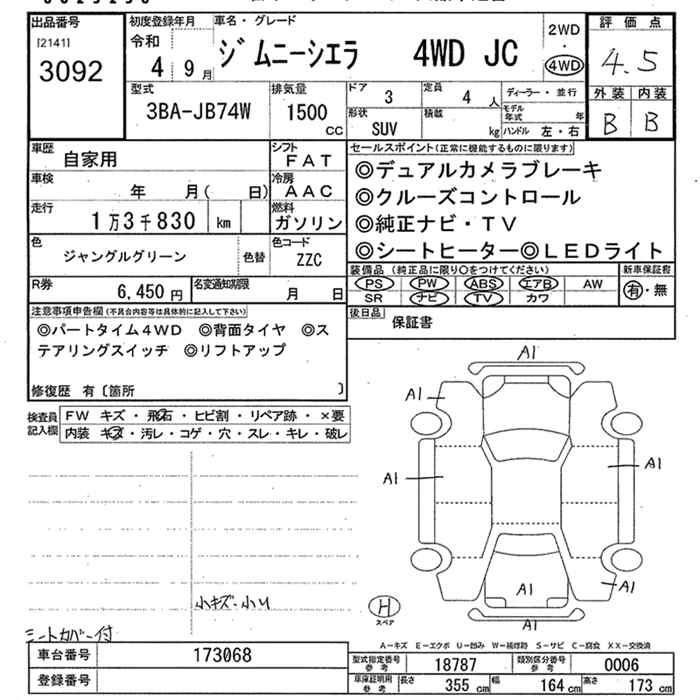 出品番号
[2141]
3092
初度登録年月
令和
4 9月
車名・グレード
ジムニーシエラ 4WD JC
2WD
・
4WD
評価点
4.5
外装 内装
B B
型式
3BA-JB74W
排気量
1500
CC
ドア 3
定員 4 人
形状 SUV
積載 kg
ディーラー・並行
モデル年式 年
ハンドル 左・右
車歴 自家用
シフト FAT
車検 年 月( 日)
冷房 AAC
走行 1万3千830 km
燃料 ガソリン
色 ジャングルグリーン 色替
色コード ZZC
R券 6,450円
名変通知期限 月 日
セールスポイント(正常に機能するものに限ります)
◎デュアルカメラブレーキ
◎クルーズコントロール
◎純正ナビ・TV
◎シートヒーター◎LEDライト
装備品(純正品に限り○をつけてください)
PS PW ABS エアB AW
SR ナビ TV カワ
新車保証書
有・無
後日品 保証書
注意事項申告欄(不具合内容等は具体的に記入して下さい)
◎パートタイム4WD ◎背面タイヤ ◎ス
テアリングスイッチ ◎リフトアップ
修復歴 有〔箇所 〕
検査員記入欄
FW キズ・飛石・ヒビ割・リペア跡・×要
内装 キズ・汚レ・コゲ・穴・スレ・キレ・破レ
A1
A1
A1
A1
A1
A1
A1
H
スペア
小キズ・小U
シートカバー付
A−キズ E−エクボ U−凹み W−補修跡 S−サビ C−腐食 XX−交換済
車台番号 173068
登録番号
型式指定番号 参考 18787
類別区分番号 参考 0006
車庫証明用 参考 長さ 355 cm 幅 164 cm 高さ 173 cm